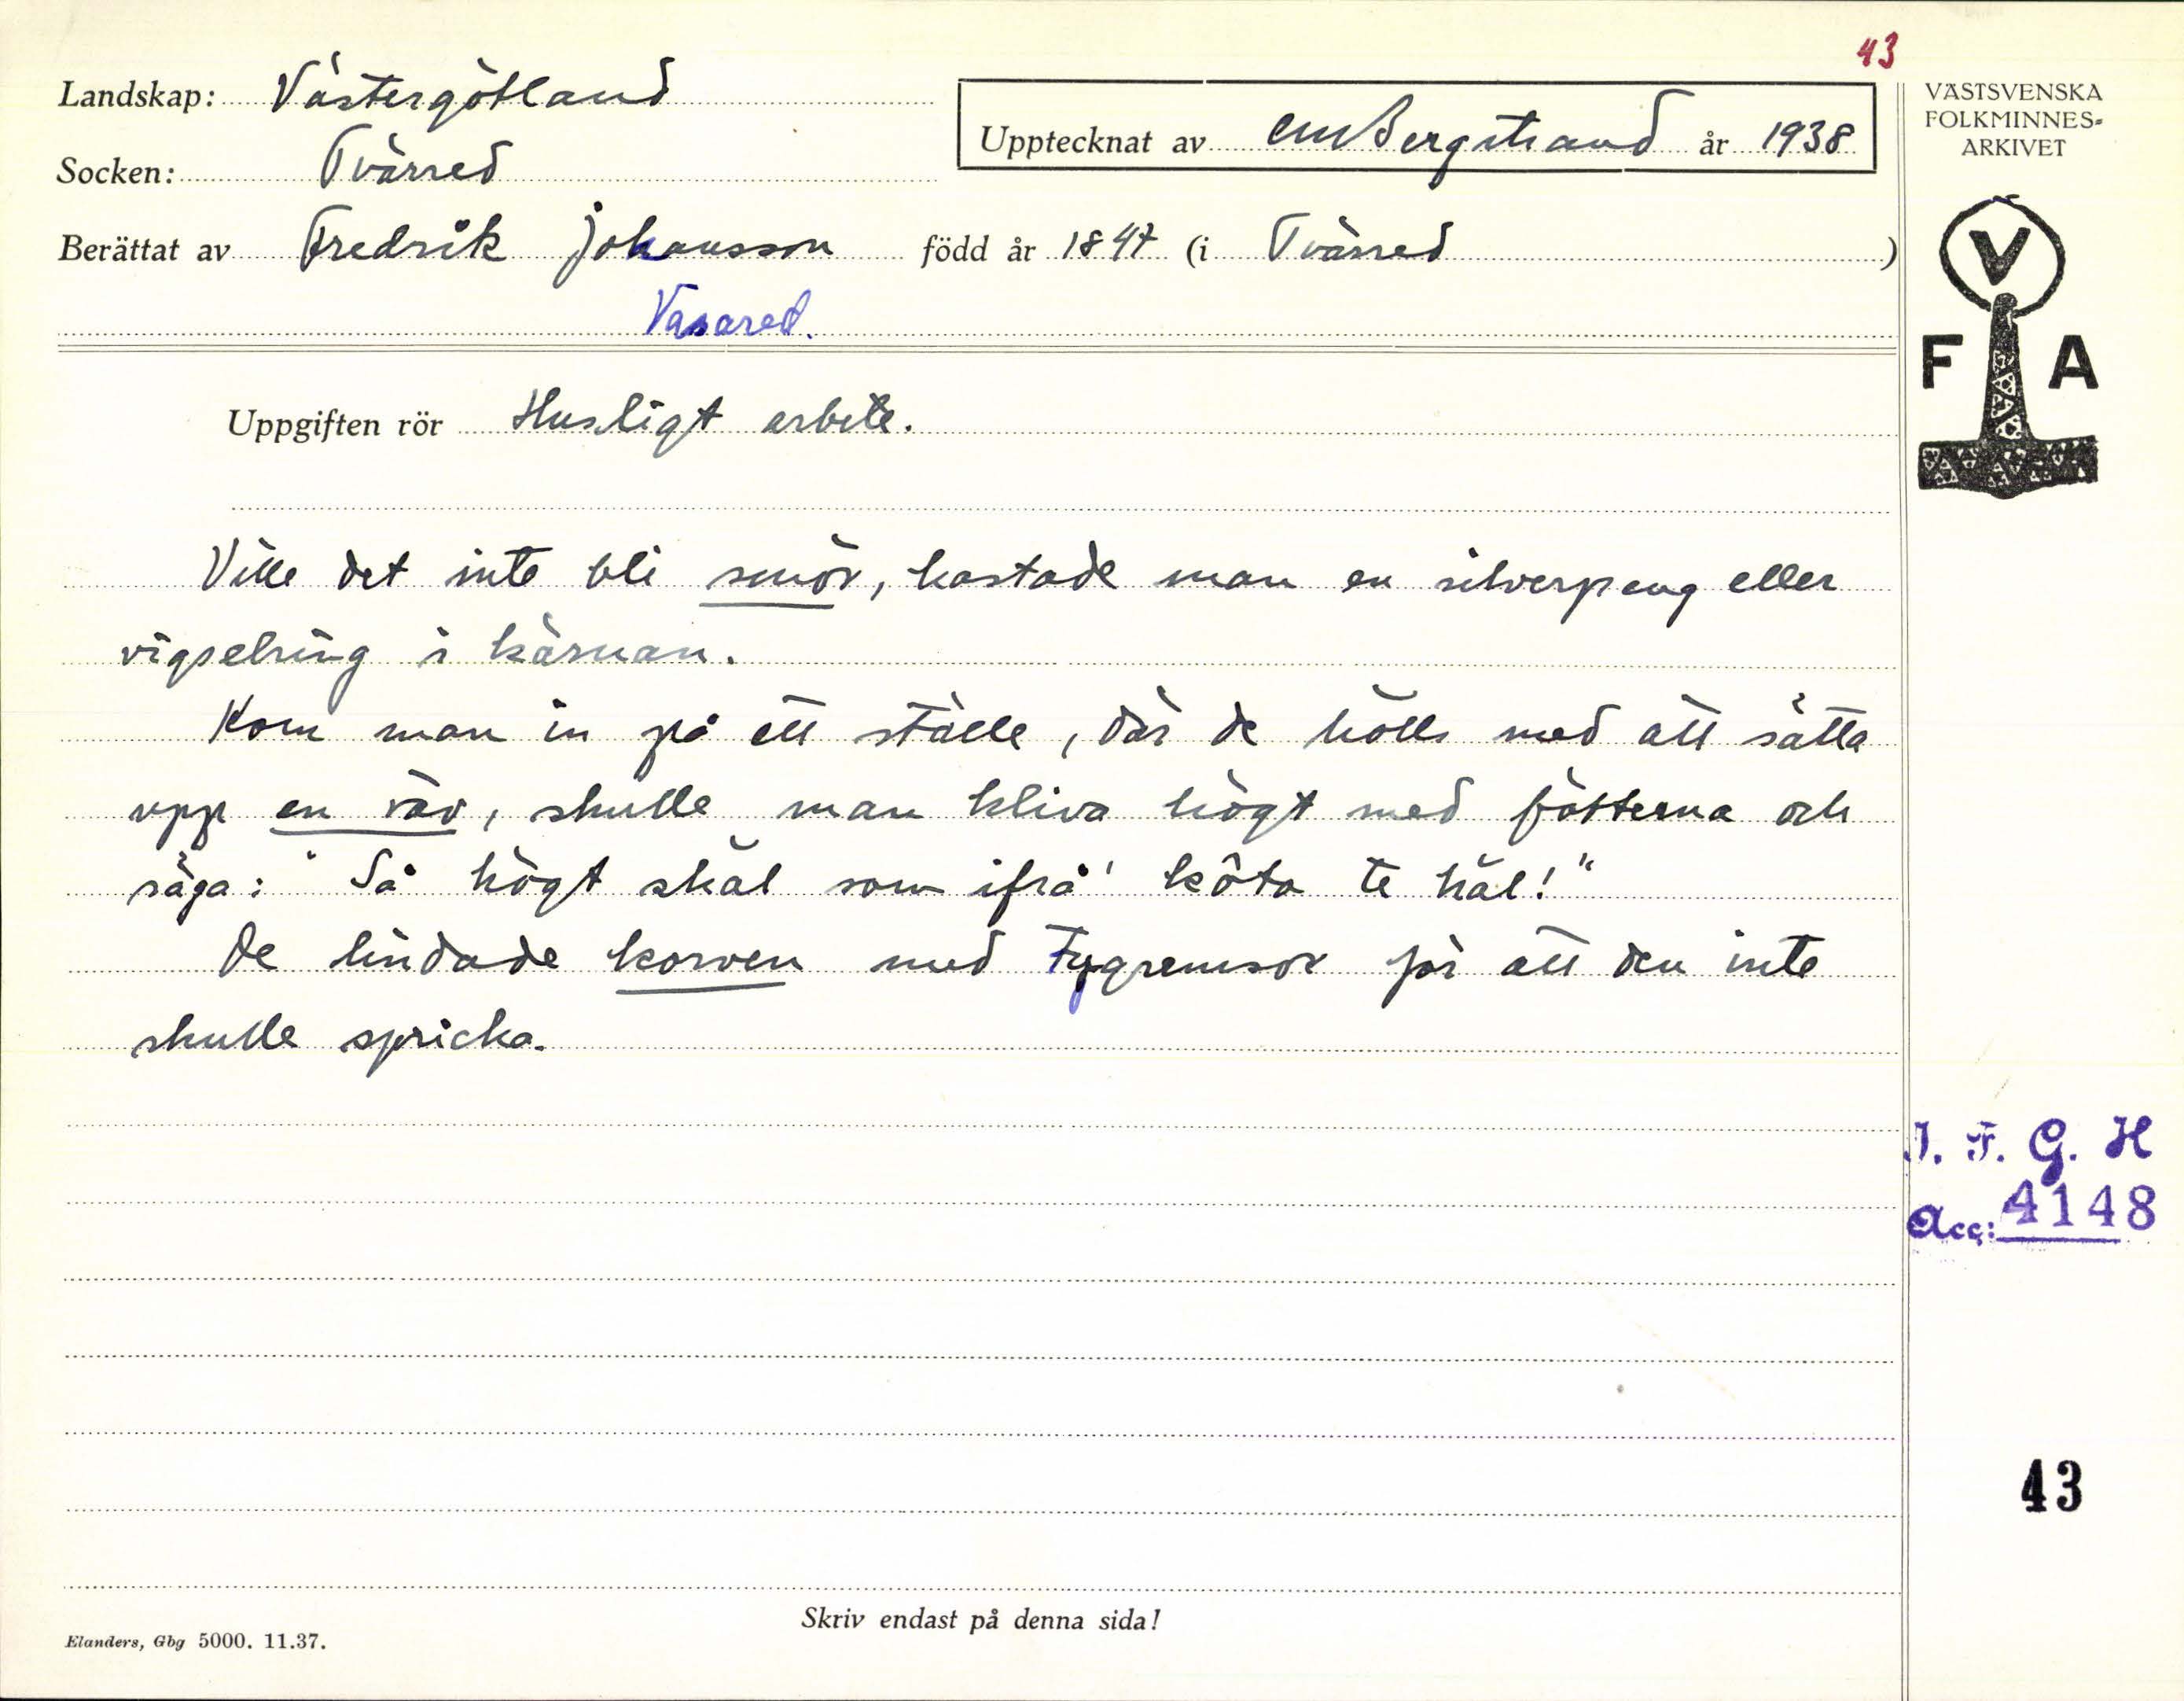 43
Landskap: Västergötland
Socken: Tvärred
Upptecknat av CM Bergstrand år 1938
Berättat av Fredrik Johansson född år 1847 (i Tvärred)
Vasared.
VÄSTSVENSKA
FOLKMINNES-
ARKIVET
V
F A
Uppgiften rör Husligt arbete.
Ville det inte bli smör, kastade man en silverpeng eller
vigselring i kärnan.
Kom man in på ett ställe, där de hölls med att sätta
upp en väv, skulle man kliva högt med fötterna och
säga: "Så högt skäl som ifrå' köta te häl!"
De lindade korven med tygremsor för att den inte
skulle spricka.
I. F. G. H
Acc: 4148
43
Skriv endast på denna sida!
Elanders, Gbg 5000. 11.37.